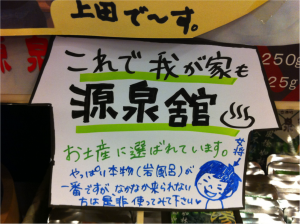 上田で〜す。
これで我が家も
源泉舘♨
お土産に選ばれています。
やっぱり本物(岩風呂)が
一番ですが、なかなか来られない
方は是非使ってみて下さい♥
女将
250g
25g